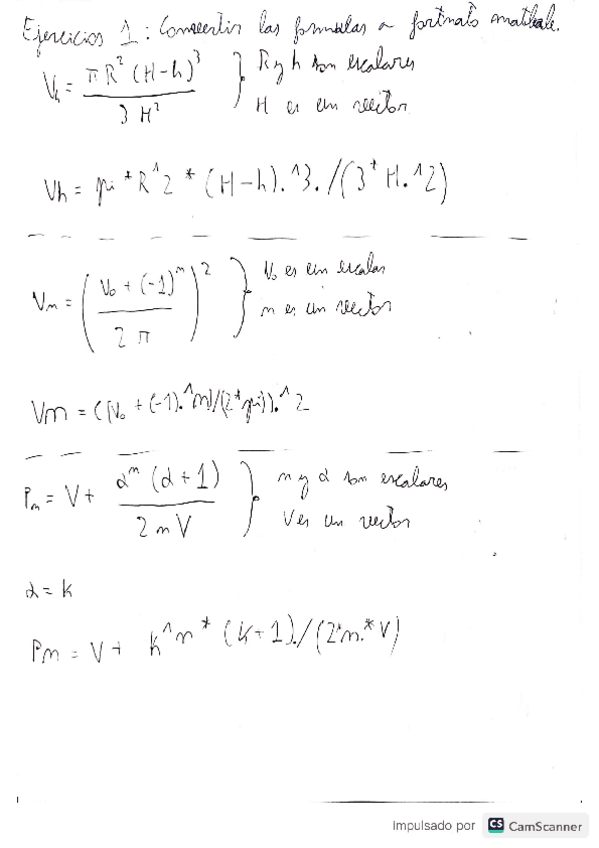 Ejercicios 1: Convertir las formulas a formato matlab.
Vh = πR²(H-h)³ / 3H² } R y h son escalares
H es un vector
Vh = pi*R^2*(H-h).^3./(3*H.^2)
Vm = ((V₀ + (-1)^m) / 2π)² } V₀ es un escalar
m es un vector
Vm = ((V₀ + (-1).^m)/(2*pi)).^2
Pm = V + α^m (α+1) / 2mV } m y α son escalares
V es un vector
α = k
Pm = V + k^m*(k+1)./(2*m.*V)
Impulsado por CS CamScanner